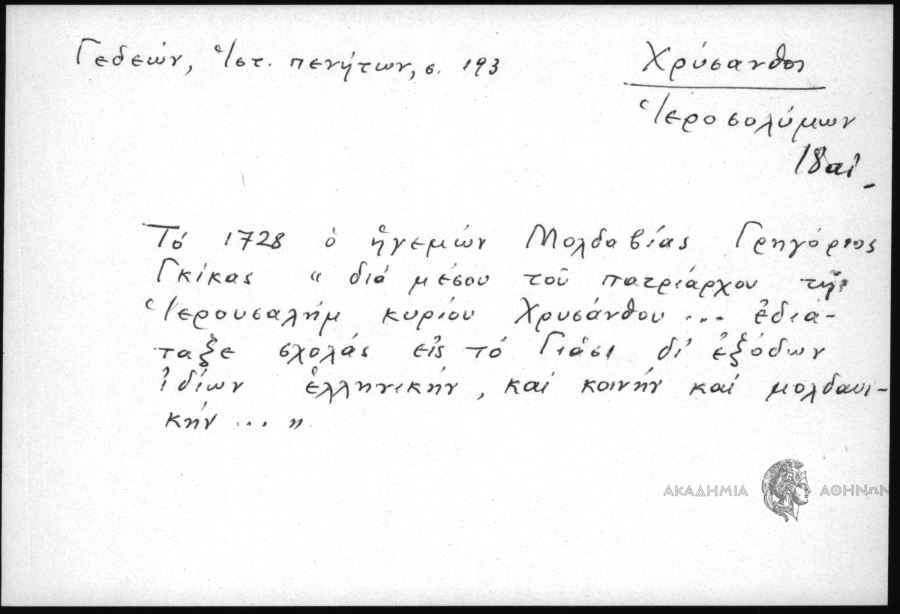 Γεδεών, Ἱστ. πενήτων, σ. 193
Χρύσανθος
Ἱεροσολύμων
18 αἰ.
Τό 1728 ὁ ἡγεμών Μολδαβίας Γρηγόριος
Γκίκας " διά μέσου τοῦ πατριάρχου τῆς
Ἱερουσαλήμ κυρίου Χρυσάνθου ... ἐδιά-
ταξε σχολάς εἰς τό Γιάσι δι' ἐξόδων
ἰδίων ἑλληνικήν, καί κοινήν καί μολδαυι-
κήν ... "
ΑΚΑΔΗΜΙΑ ΑΘΗΝΩΝ